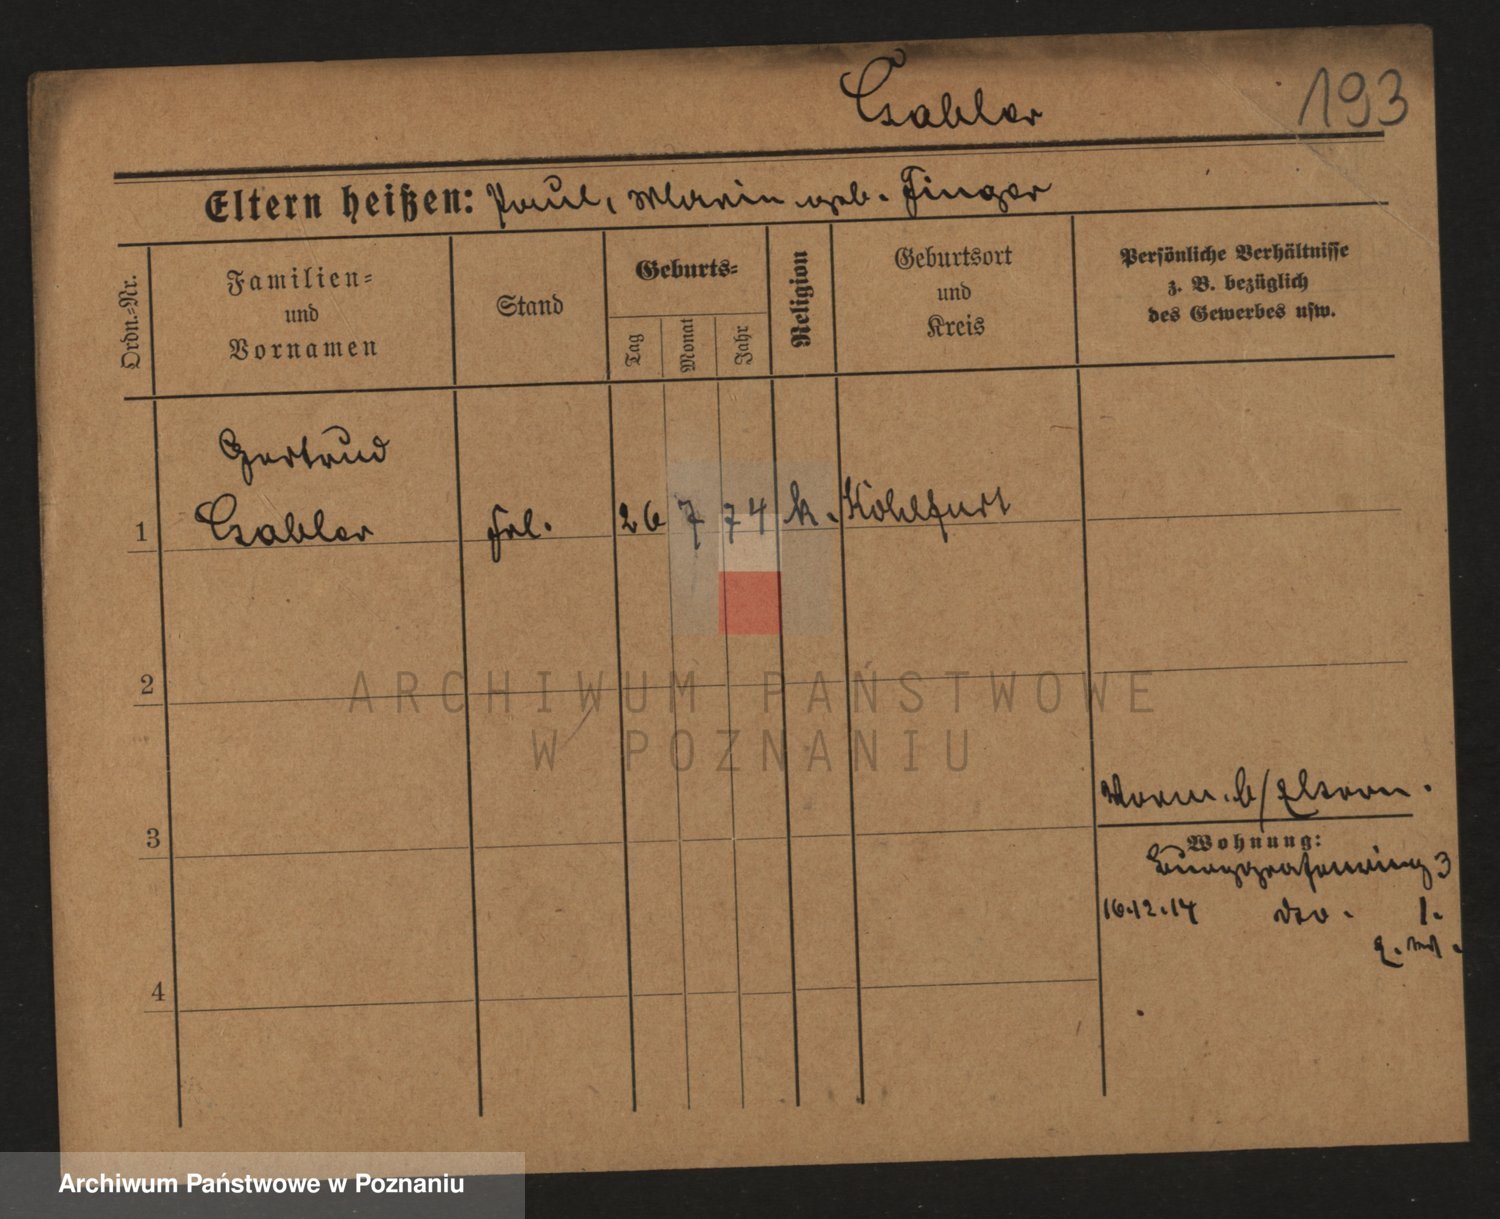 Gabler
193
Eltern heißen: Paul, Marie geb. Finger
Ordn.-Nr.
Familien-
und
Vornamen
Stand
Geburts-
Tag
Monat
Jahr
Religion
Geburtsort
und
Kreis
Persönliche Verhältnisse
z. B. bezüglich
des Gewerbes usw.
Gertrud
1 Gabler Frl. 26 7 74 k. Kohlfurt
2
ARCHIWUM PAŃSTWOWE
W POZNANIU
b/Eltern.
3
Wohnung:
Burggrafenring 3
16.12.14 dto. 1.
4
Archiwum Państwowe w Poznaniu